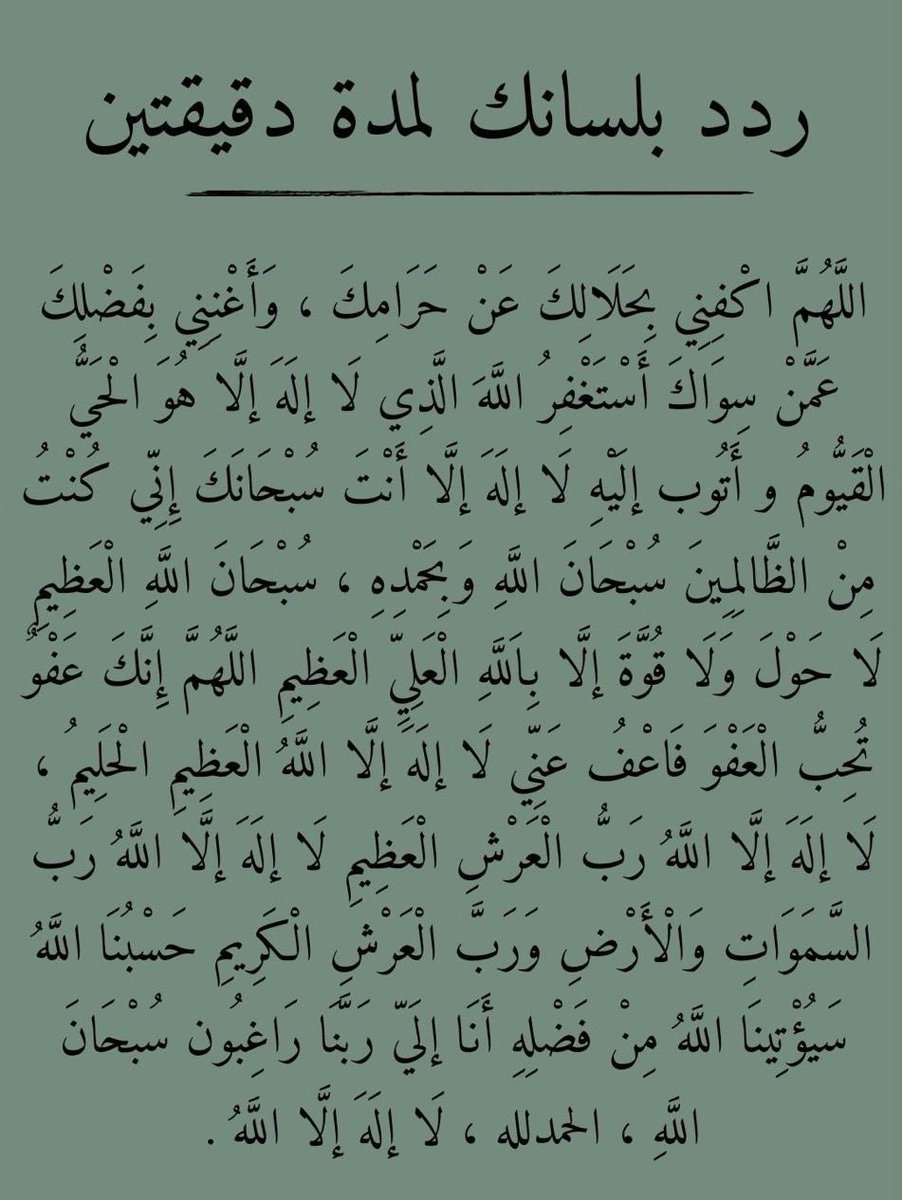 ردد بلسانك لمدة دقيقتين
اللَّهُمَّ اكْفِنِي بِحَلَالِكَ عَنْ حَرَامِكَ ، وَأَغْنِنِي بِفَضْلِكَ
عَمَّنْ سِوَاكَ أَسْتَغْفِرُ اللَّهَ الَّذِي لَا إِلَهَ إِلَّا هُوَ الْحَيُّ
الْقَيُّومُ و أَتُوب إِلَيْهِ لَا إِلَهَ إِلَّا أَنْتَ سُبْحَانَكَ إِنِّي كُنْتُ
مِنْ الظَّالِمِينَ سُبْحَانَ اللَّهِ وَبِحَمْدِهِ ، سُبْحَانَ اللَّهِ الْعَظِيمِ
لَا حَوْلَ وَلَا قُوَّةَ إِلَّا بِاَللَّهِ الْعَلِيِّ الْعَظِيمِ اللَّهُمَّ إِنَّكَ عَفْوٌ
تُحِبُّ الْعَفْوَ فَاعْفُ عَنِّي لَا إِلَهَ إِلَّا اللَّهُ الْعَظِيمِ الْحَلِيمُ ،
لَا إِلَهَ إِلَّا اللَّهُ رَبُّ الْعَرْشِ الْعَظِيمِ لَا إِلَهَ إِلَّا اللَّهُ رَبُّ
السَّمَوَاتِ وَالْأَرْضِ وَرَبَّ الْعَرْشِ الْكَرِيمِ حَسْبُنَا اللَّهُ
سَيُؤْتِينَا اللَّهُ مِنْ فَضْلِهِ أَنَا إِلَيّ رَبَّنَا رَاغِبُون سُبْحَانَ
اللَّهِ ، الحمدلله ، لَا إِلَهَ إِلَّا اللَّهُ .